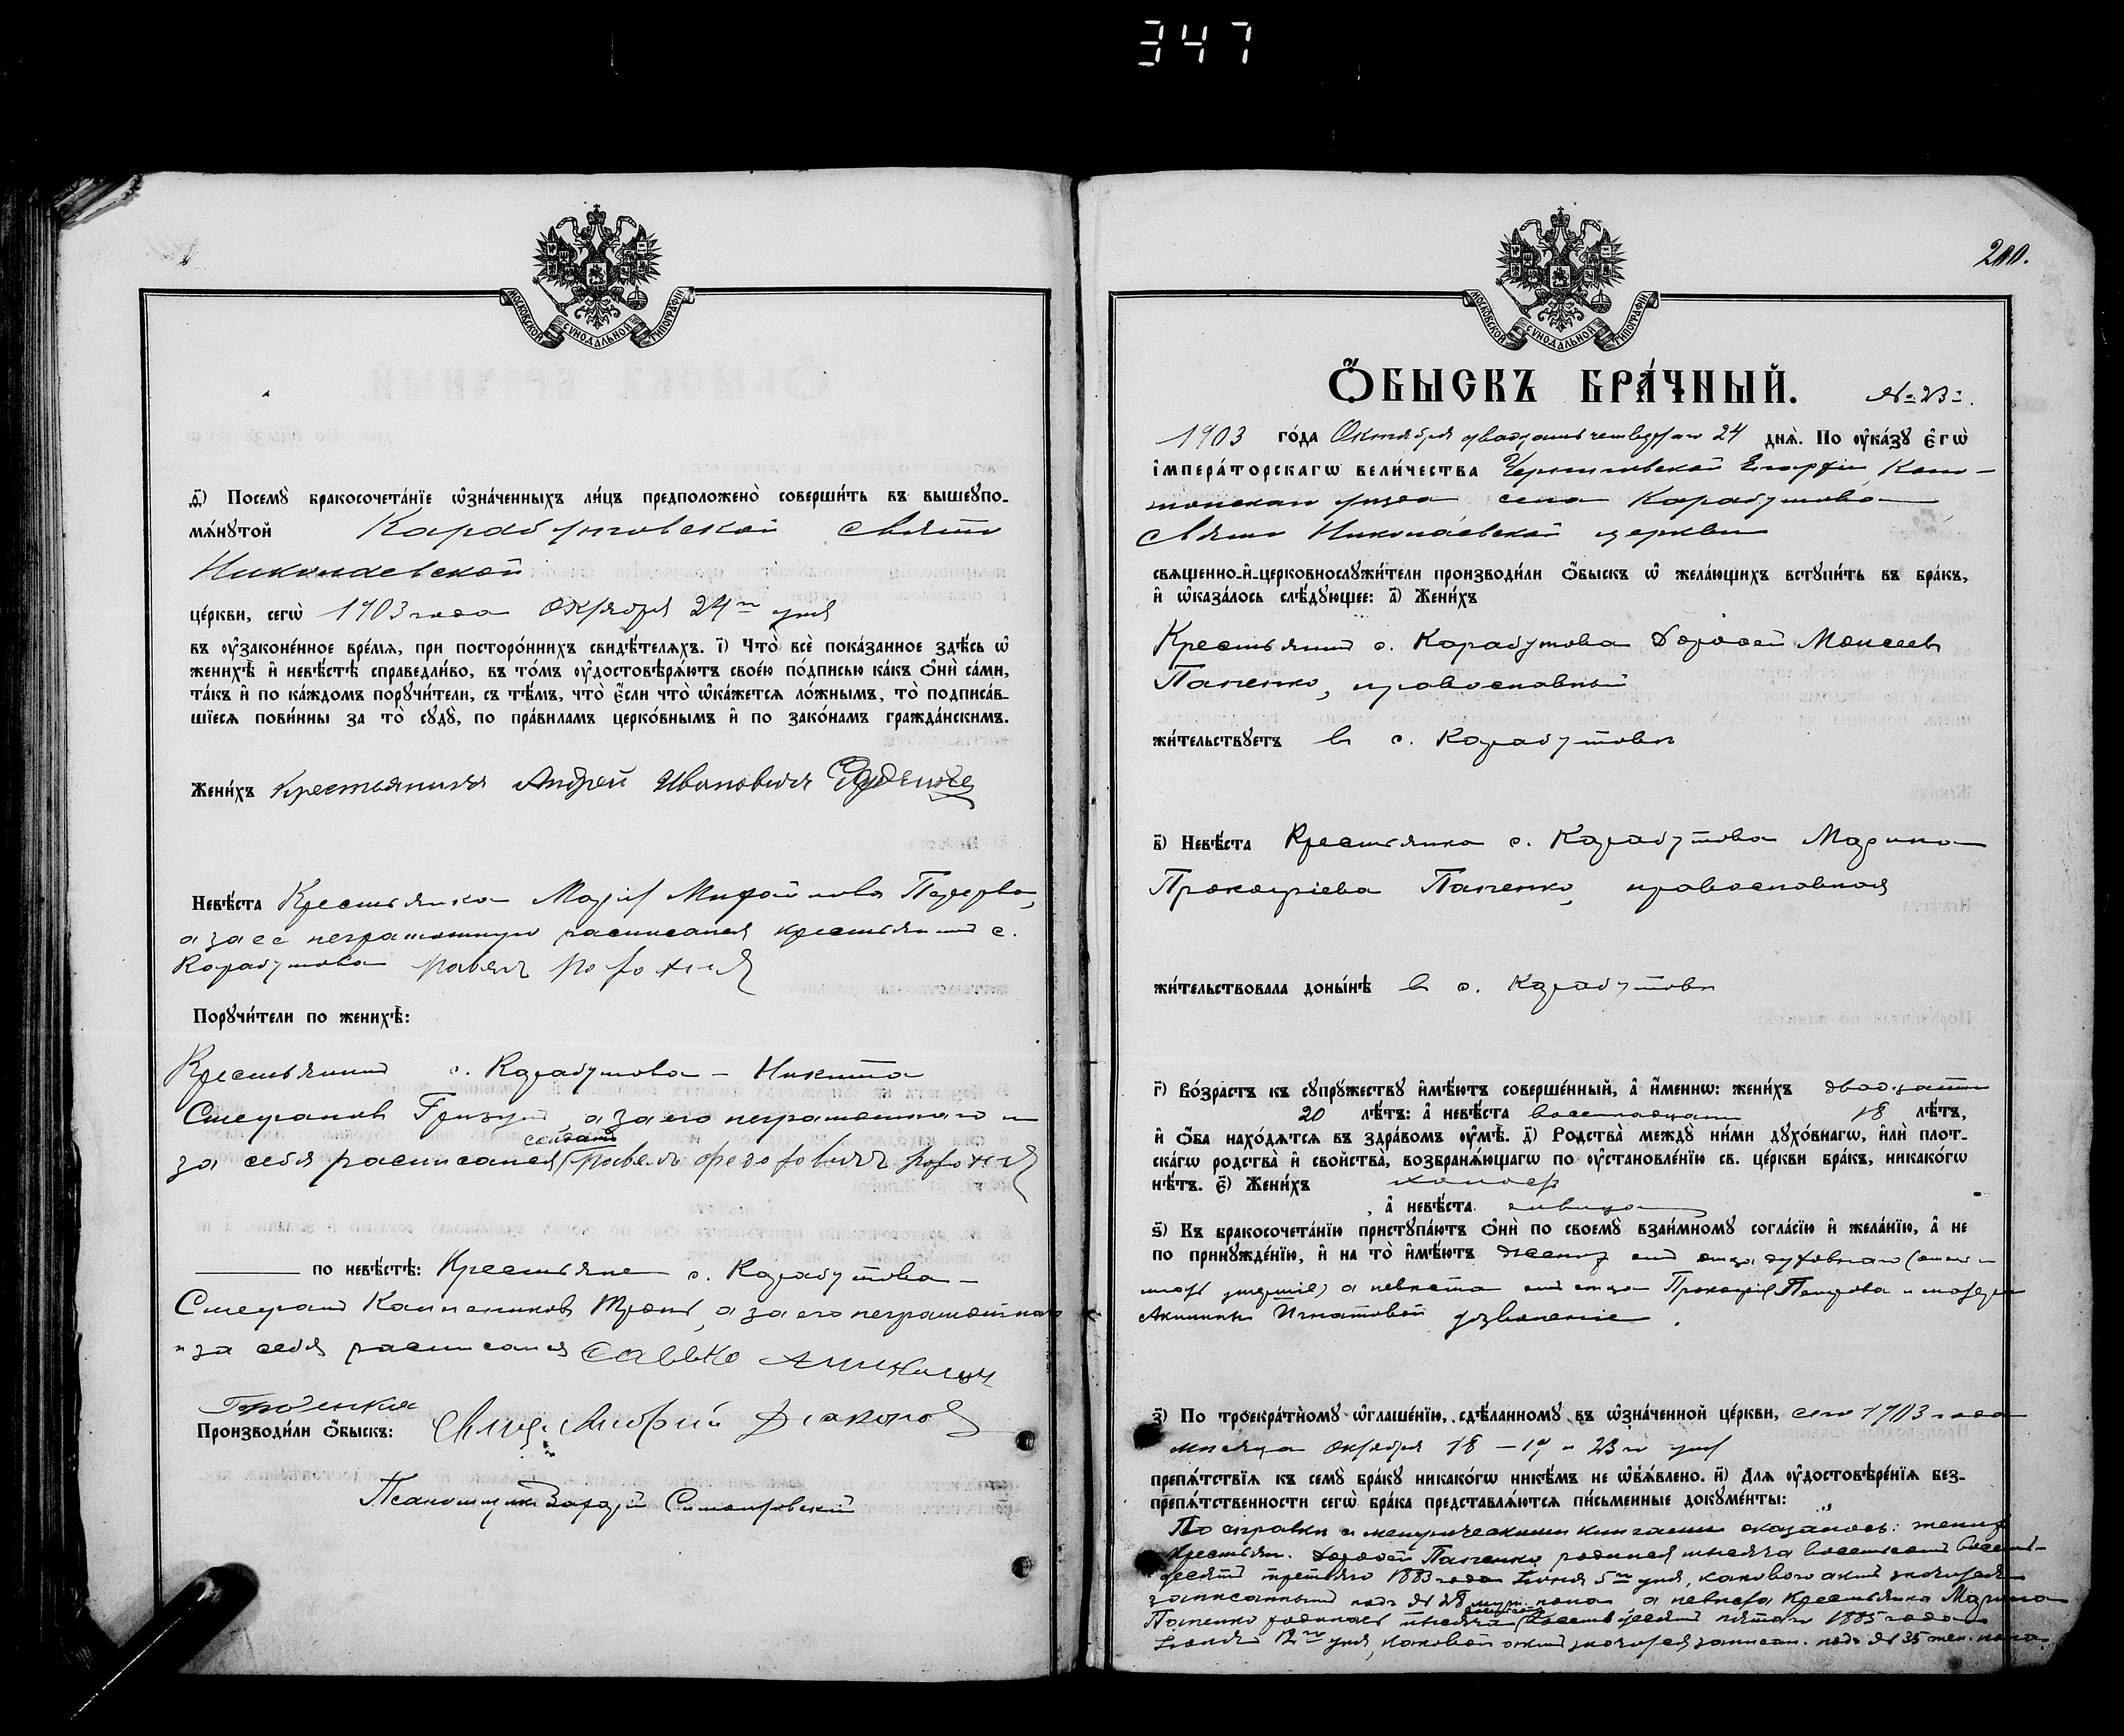 347
МОСКОВСКОЙ СѴНОДАЛЬНОЙ ТИПОГРАФІИ
д҃) Посемꙋ̀ бракосочета́нїе ѡ҆зна́ченныхъ ли́цъ предположено̀ соверши́ть въ вышеупо-
мѧ́нꙋтой Карабутовской Свято
Николаевской
це́ркви, сегѡ̀ 1903 года Октября 24го дня
въ ᲂу҆зако́ненное вре́мѧ, при посторо́ннихъ свидѣ́телѧхъ. і҃) Что̀ всѐ пока́занное здѣ́сь ѡ҆
женихѣ̀ и҆ невѣ́стѣ справедли́во, въ то́мъ ᲂу҆достовѣрѧ́ютъ свое́ю по́дписью ка́къ ѻ҆нѝ са́ми,
та́къ и҆ по ка́ждомъ порꙋчи́тели, съ тѣ́мъ, что̀ є҆́сли что̀ ѡ҆ка́жетсѧ ло́жнымъ, то̀ подписа́в-
шїесѧ пови́нны за то̀ сꙋдꙋ̀, по пра́виламъ церко́внымъ и҆ по зако́намъ гражда́нскимъ.
Жени́хъ крестьянинъ Андрей Ивановичъ
Невѣ́ста Крестьянка Марія Михайлова
а за ее неграмотную расписался крестьянинъ с.
Карабутова
Порꙋчи́тели по женихѣ̀:
Крестьянинъ с. Карабутова – Никита
Стефановъ а за его неграмотнаго и
солдатъ
за себя расписался
по невѣ́стѣ: Крестьяне с. Карабутова –
Стефанъ а за его неграмотнаго
и за себя расписался Савко
Производи́ли ѻ҆́быскъ: Свящ. Андрей Дьяконовъ
Псаломщикъ
200.
МОСКОВСКОЙ СѴНОДАЛЬНОЙ ТИПОГРАФІИ
Ѻ҆́БЫСКЪ БРА́ЧНЫЙ. № 23
1903 го́да Октября двадцать четвертаго 24 днѧ̀. По ᲂу҆ка́зꙋ є҆гѡ̀
і҆мпера́торскагѡ вели́чества Черниговской Епархіи, Коно-
топскаго уѣзда села Карабутова
Свято Николаевской церкви
свѧще́нно-и҆-церковнослꙋжи́тели производи́ли ѻ҆́быскъ ѡ҆ жела́ющихъ встꙋпи́ть въ бра́къ,
и҆ ѡ҆каза́лось слѣ́дꙋющее: а҃) Жени́хъ
Крестьянинъ с. Карабутова Дорофей Моисеевъ
Папенко, православный
жи́тельствꙋетъ въ с. Карабутовѣ
в҃) Невѣ́ста Крестьянка с. Карабутова Марина
Прокофіева Папенко, православная
жи́тельствовала доны́нѣ въ с. Карабутовѣ
г҃) Во́зрастъ къ сꙋпрꙋ́жествꙋ и҆мѣ́ютъ соверше́нный, а҆ и҆́меннѡ: жени́хъ двадцати
20 лѣ́тъ: а҆ невѣ́ста восемнадцати 18 лѣ́тъ,
и҆ ѻ҆́ба нахо́дѧтсѧ въ здра́вомъ ᲂу҆мѣ̀. д҃) Родства̀ междꙋ̀ ни́ми дꙋхо́внагѡ, и҆лѝ плот-
ска́гѡ родства̀ и҆ сво́йства̀, возбранѧ́ющагѡ по ᲂу҆становле́нїю св. це́ркви бра́къ, никако́гѡ
нѣ́тъ. є҃) Жени́хъ холостъ
, а҆ невѣ́ста дѣвица
ѕ҃) Къ бракосочета́нїю пристꙋпа́ютъ ѻ҆нѝ по своемꙋ̀ взаи́мномꙋ согла́сїю и҆ жела́нїю, а҆ не
по принꙋжде́нїю, и҆ на то̀ и҆мѣ́ютъ женихъ отъ отца духовнаго (отецъ и
мать умершіе) а невѣста отъ отца Прокофія Петрова и матери
Акилины Игнатовой дозволеніе.
з҃) По троекра́тномꙋ ѡ҆глаше́нїю, сдѣ́ланномꙋ въ ѡ҆зна́ченной це́ркви, сего 1903 года
мѣсяца Октября 18 – 19 и 23го дня
препѧ́тствїѧ къ семꙋ̀ бра́кꙋ никако́гѡ никѣ́мъ не ѡ҆б̾ѧ́влено. и҃) Длѧ ᲂу҆достовѣре́нїѧ без-
препѧ́тственности сегѡ̀ бра́ка представлѧ́ютсѧ пи́сьменные докꙋме́нты:
По справки съ метрическими книгами оказалось: женихъ
крестьян. Дорофей Папенко родился тысяча восемьсотъ восемь-
десятъ третьяго 1883 года Іюня 5го дня, каковой актъ значится
записаннымъ подъ № 28 муж. пола, а невѣста крестьянка Марина
восемьсотъ
Папенко родилась тысяча восемьдесятъ пятаго 1885 года
Іюля 12го дня, каковой актъ значится записан. подъ № 35 жен. пола.